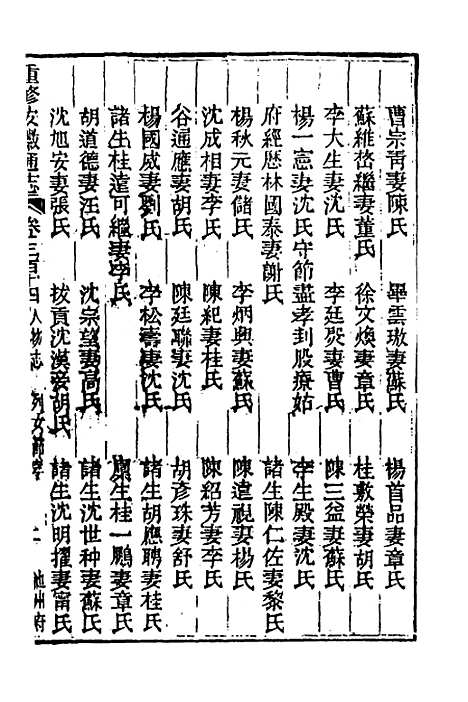 曹宗青妻陳氏　畢雲璈妻蘇氏　楊首品妻章氏
蘇維嵆繼妻董氏　徐文煥妻章氏　桂敷榮妻胡氏
李大生妻沈氏　李廷煚妻曹氏　陳三益妻蘇氏
楊一憲妻沈氏守節盡孝刲股療姑　李生殿妻沈氏
府經歷林國泰妻謝氏　諸生陳仁佐妻黎氏
楊秋元妻儲氏　李炳與妻蘇氏　陳遠視妻楊氏
沈成相妻李氏　陳紀妻桂氏　陳紹芳妻李氏
谷通應妻胡氏　陳廷聯妻沈氏　胡彥珠妻舒氏
楊國威妻劉氏　李松壽妻沈氏　諸生胡應聘妻桂氏
諸生桂遠可繼妻李氏　廩生桂一鵬妻章氏
胡道德妻汪氏　沈宗望妻高氏　諸生沈世种妻蘇氏
沈旭安妻張氏　拔貢沈漢妾胡氏　諸生沈明擢妻甯氏
重修安徽通志　卷三百四　人物志　列女節孝　二　池州府